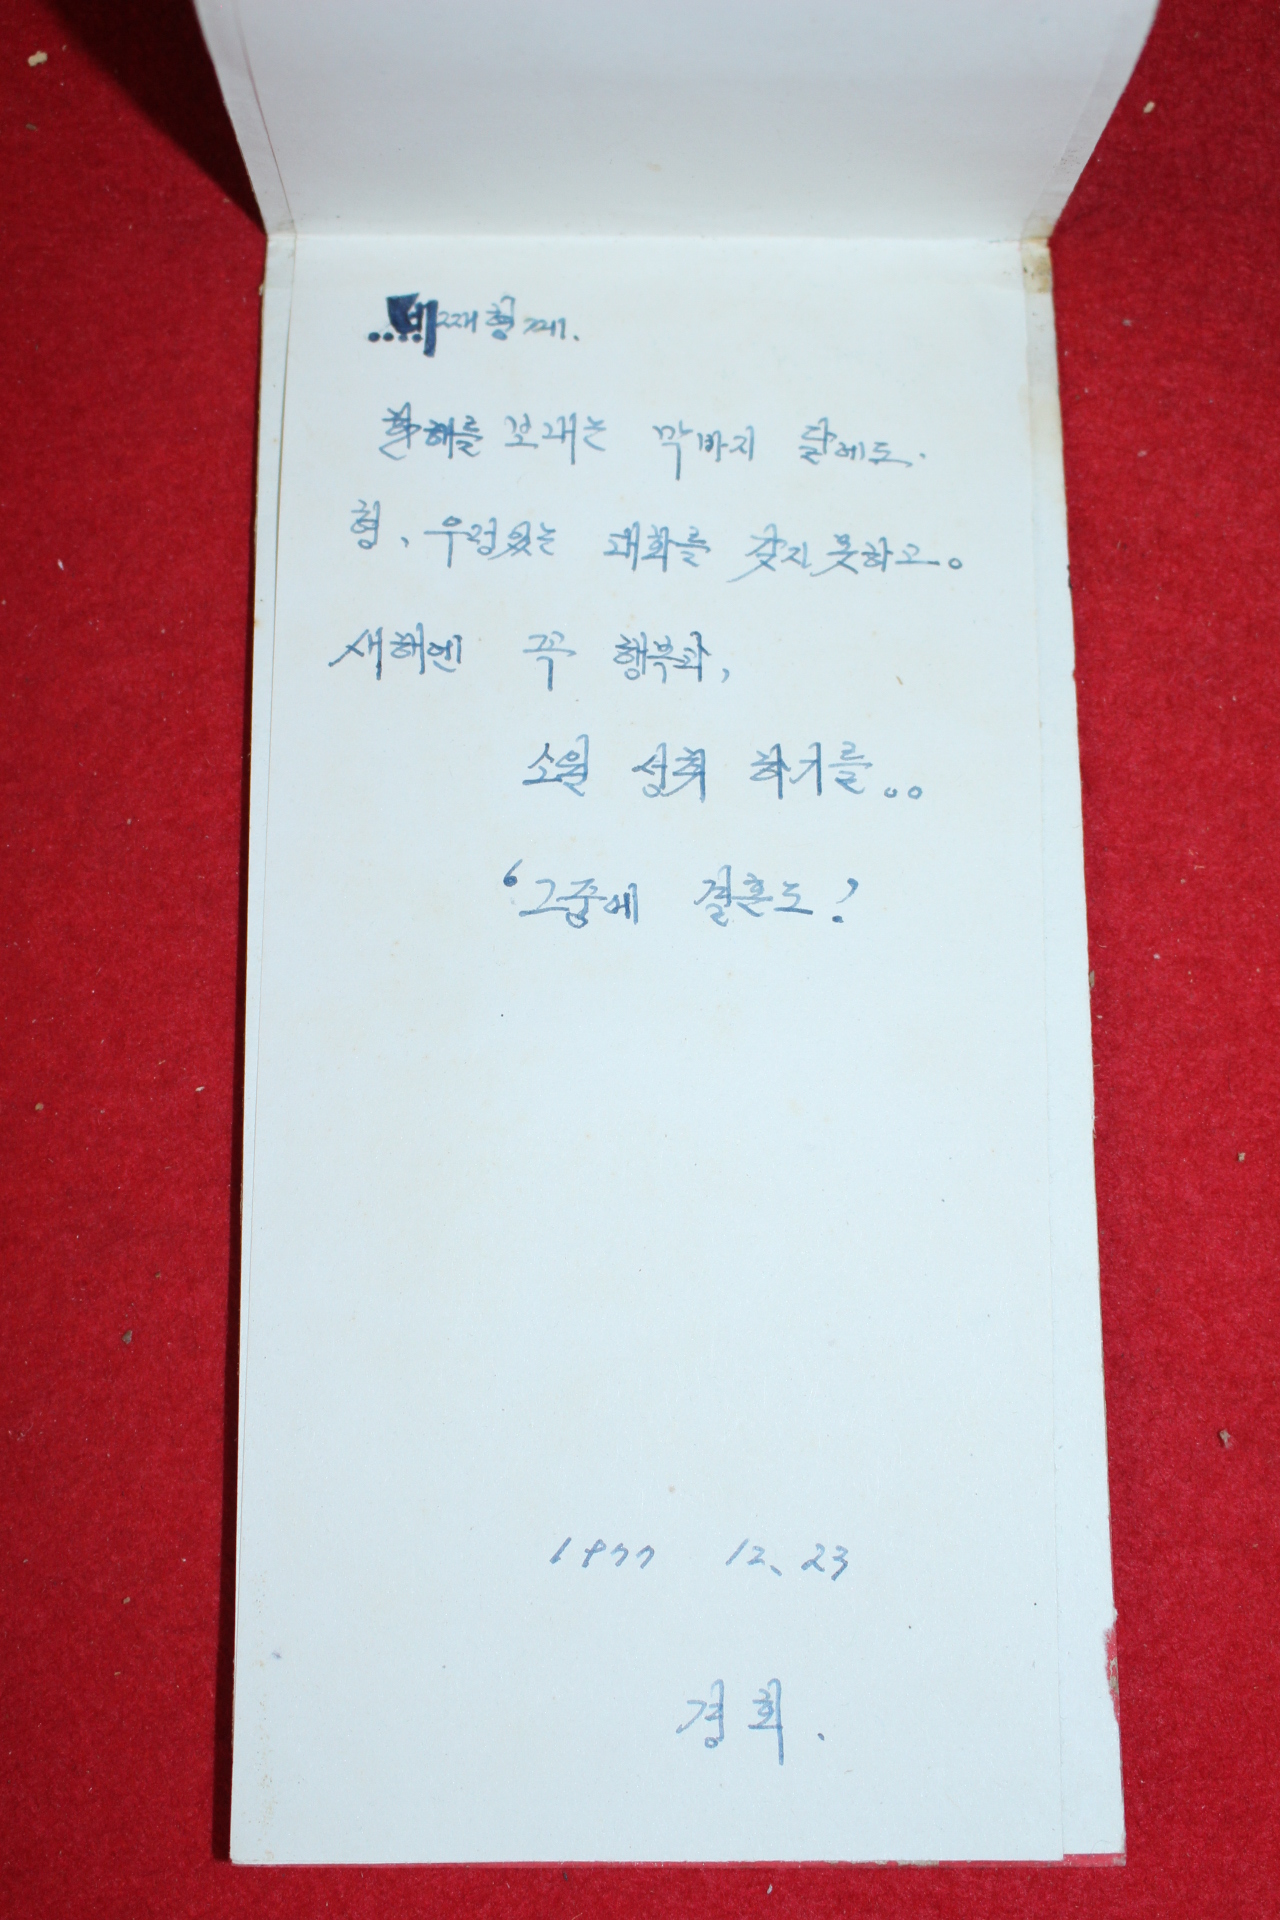 형께.
한해를 보내는 막바지 달에도.
형, 우정있는 대화를 갖지 못하고。
새해엔 꼭 행복과,
소원 성취 하기를。。
‘그중에 결혼도!
1977 12、23
경희.